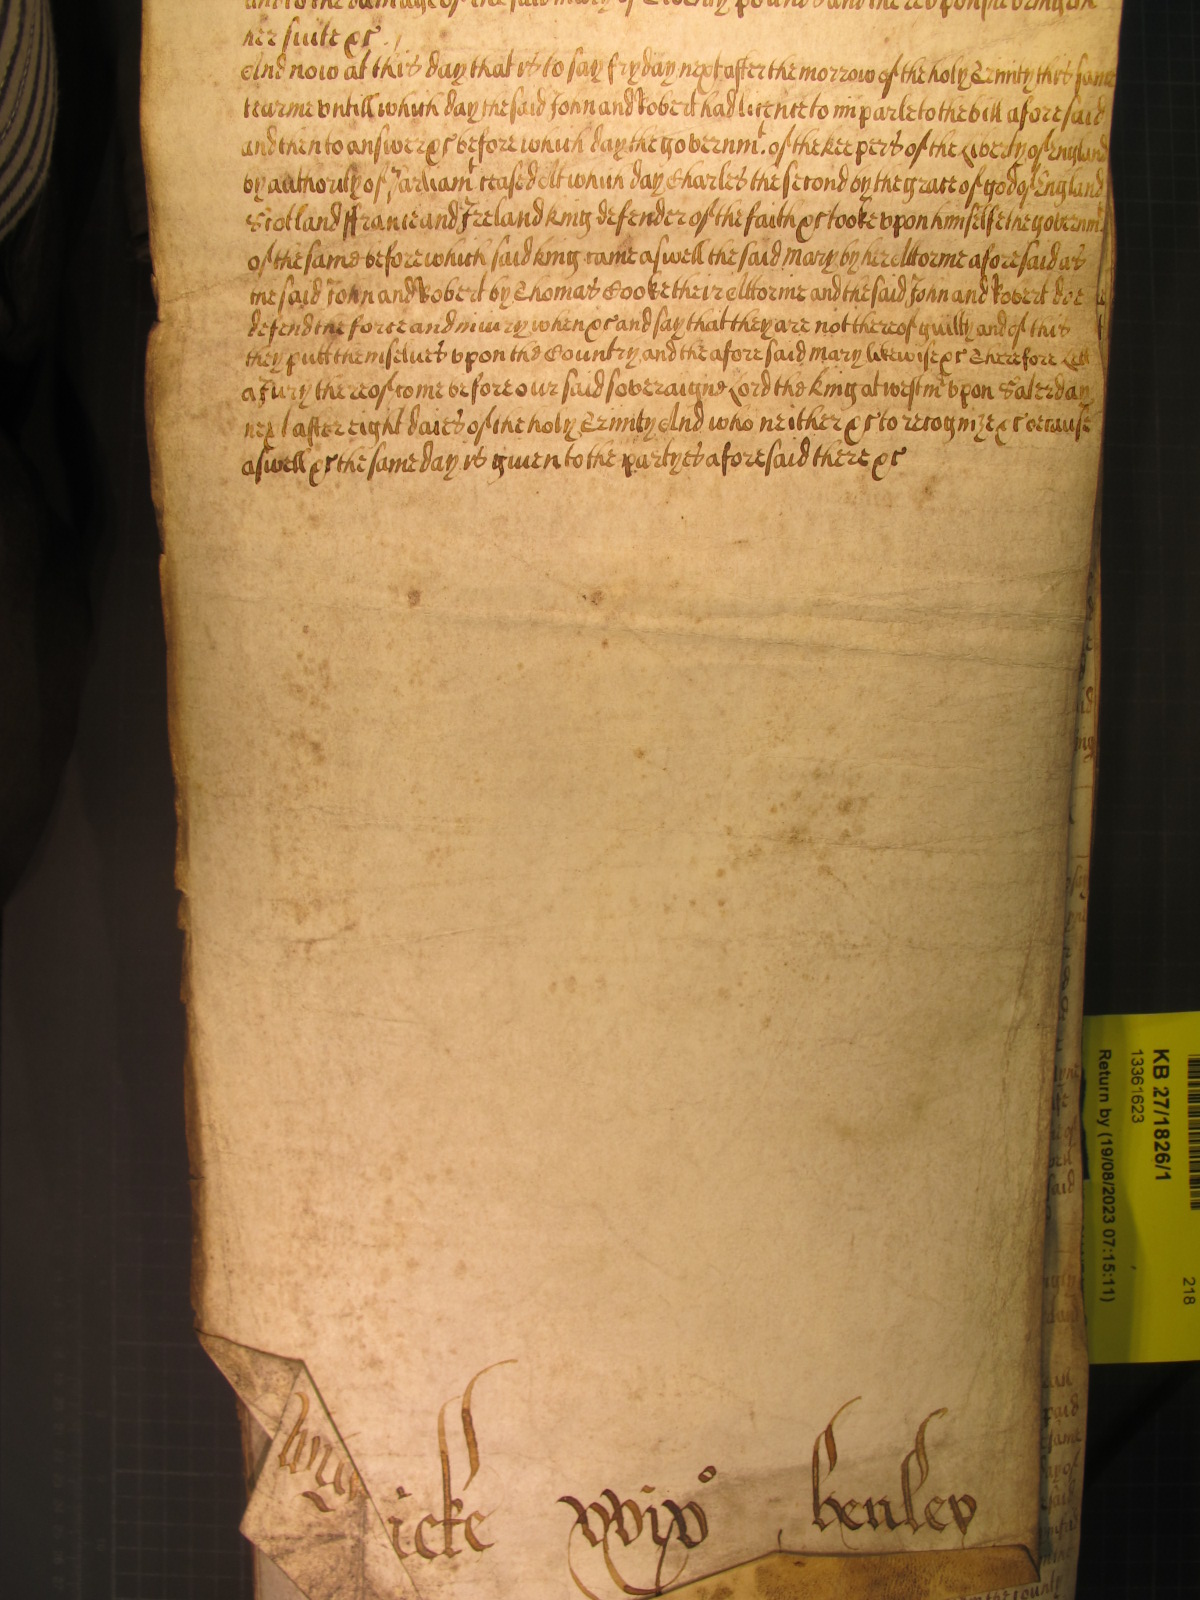 and to the damage of the said Mary of Twenty pounds and thereupon she brings
her suite &c.
And now at this day that is to say fryday next after the morrow of the holy Trinity this same
tearme untill which day the said John and Robert had licence to imparle to the bill aforesaid
and then to answer &c before which day the governmt. of the keepers of the Liberty of England
by authority of Parliamt ceased Att which day Charles the second by the grace of god of England
Scotland ffrance and Ireland king defender of the faith &c tooke upon himselfe the governmt
of the same before which said king came aswell the said Mary by her Attorne aforesaid as
the said John and Robert by Thomas Cooke their Attorne and the said John and Robert doe
defend the force and iniury when &c and say that they are not thereof guilty and of this
they putt themselves upon the Country and the aforesaid Mary likewise &c Therefore Lett
a Jury thereof come before our said soveraigne Lord the king at westmr upon Saterday
next after eight daies of the holy Trinity And who neither &c to recognize &c because
aswell &c the same day is given to the partyes aforesaid there &c
icke
henley
KB 27/1826/1
13361623
Return by (19/08/2023 07:15:11)
218